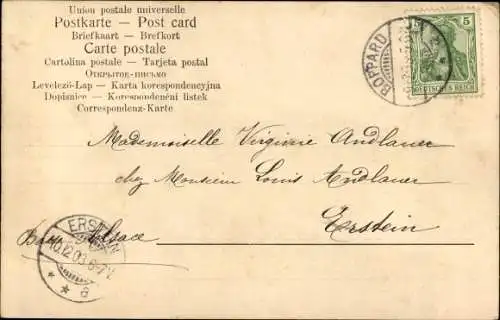 Union postale universelle
Postkarte — Post card
Briefkaart — Brefkort
Carte postale
Cartolina postale — Tarjeta postal
Открытое-письмо
Levelező-Lap — Karta korespondencyjna
Dopisnice — Korespondenční listek
Correspondenz-Karte
BOPPARD
5 5
DEUTSCHES REICH
Mademoiselle Virginie Andlauer
chez Monsieur Louis Andlauer
Erstein
Basse Alsace
ERSTEIN
10.12.03.6-7V.
* * a